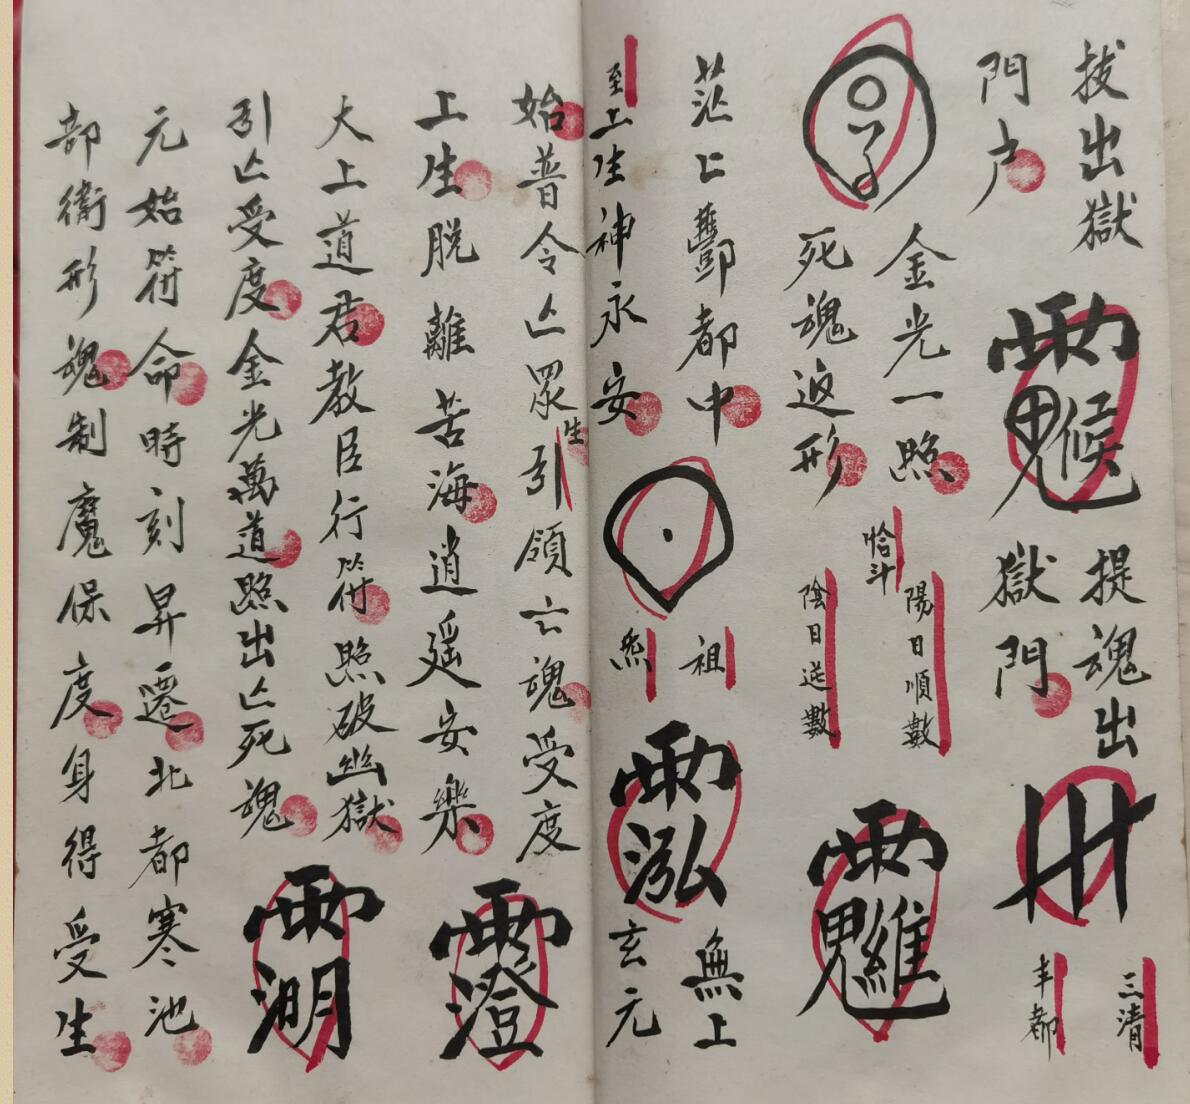 拔出獄
提魂出
三清
門户
獄門
丰都
金光一照
恰斗
陽日順數
死魂返形
陰日逆數
茫〻酆都中
祖
無上
至上生神永安
炁
玄元
始普令亾眾生引領亡魂受度
上生脱離苦海逍遥安樂
大上道君教臣行符照破幽獄
引亾受度金光萬道照出亾死魂
元始符命時刻昇遷北都寒池
部衛形魂制魔保度身得受生